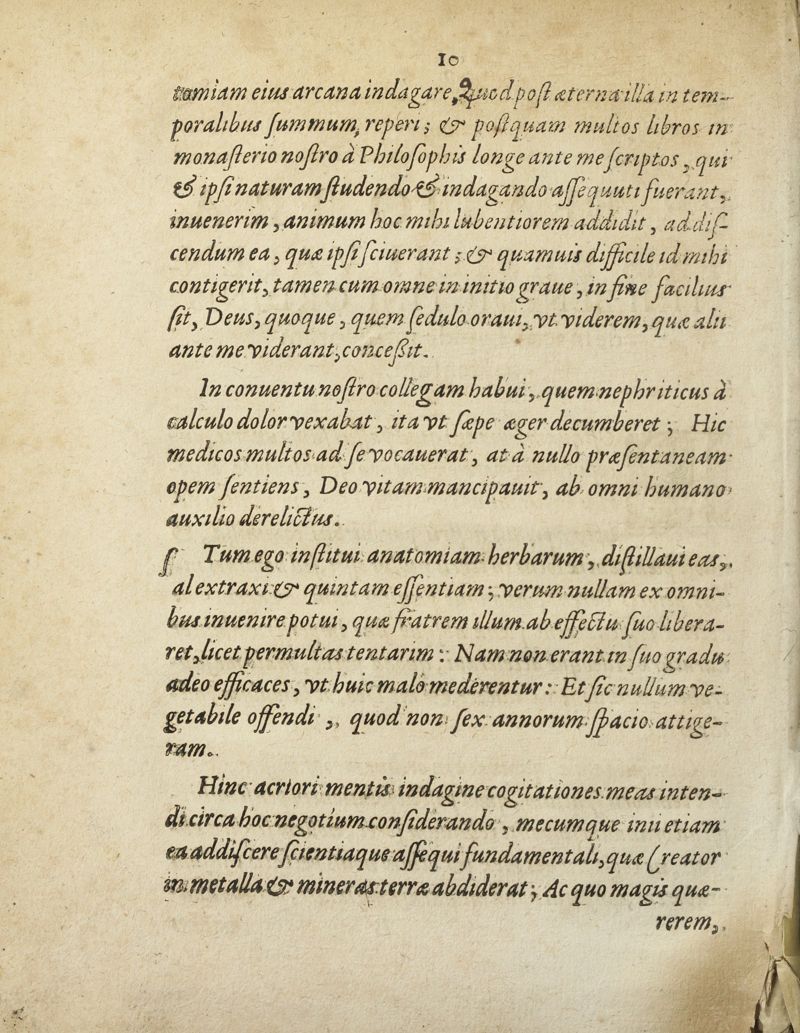 10
tomiam eius arcana indagare, Quod post æterna illa in tem-
poralibus summum, reperi; & postquam multos libros in
monasterio nostro à Philosophis longe ante me scriptos, qui
& ipsi naturam studendo & indagando assequuti fuerant,
inuenerim, animum hoc mihi lubentiorem addidit, addis-
cendum ea, quæ ipsi sciuerant; & quamuis difficile id mihi
contigerit, tamen cum omne in initio graue, in fine facilius
sit, Deus, quoque, quem sedulo oraui, vt viderem, quæ alii
ante me viderant, concessit.
In conuentu nostro collegam habui, quem nephriticus à
calculo dolor vexabat, ita vt sæpe æger decumberet; Hic
medicos multos ad se vocauerat, at à nullo præsentaneam
opem sentiens, Deo vitam mancipauit, ab omni humano
auxilio derelictus.
ſ Tum ego institui anatomiam herbarum, distillaui eas,
al extraxi & quintam essentiam; verum nullam ex omni-
bus inuenire potui, quæ fratrem illum ab effectu suo libera-
ret, licet permultas tentarim: Nam non erant in suo gradu
adeo efficaces, vt huic malo mederentur: Et sic nullum ve-
getabile offendi, quod non sex annorum spacio attige-
ram.
Hinc acriori mentis indagine cogitationes meas inten-
di circa hoc negotium considerando, mecumque inii etiam
ea addiscere scientiaque assequi fundamentali, quæ Creator
in metalla & mineras terræ abdiderat; Ac quo magis quæ-
rerem,